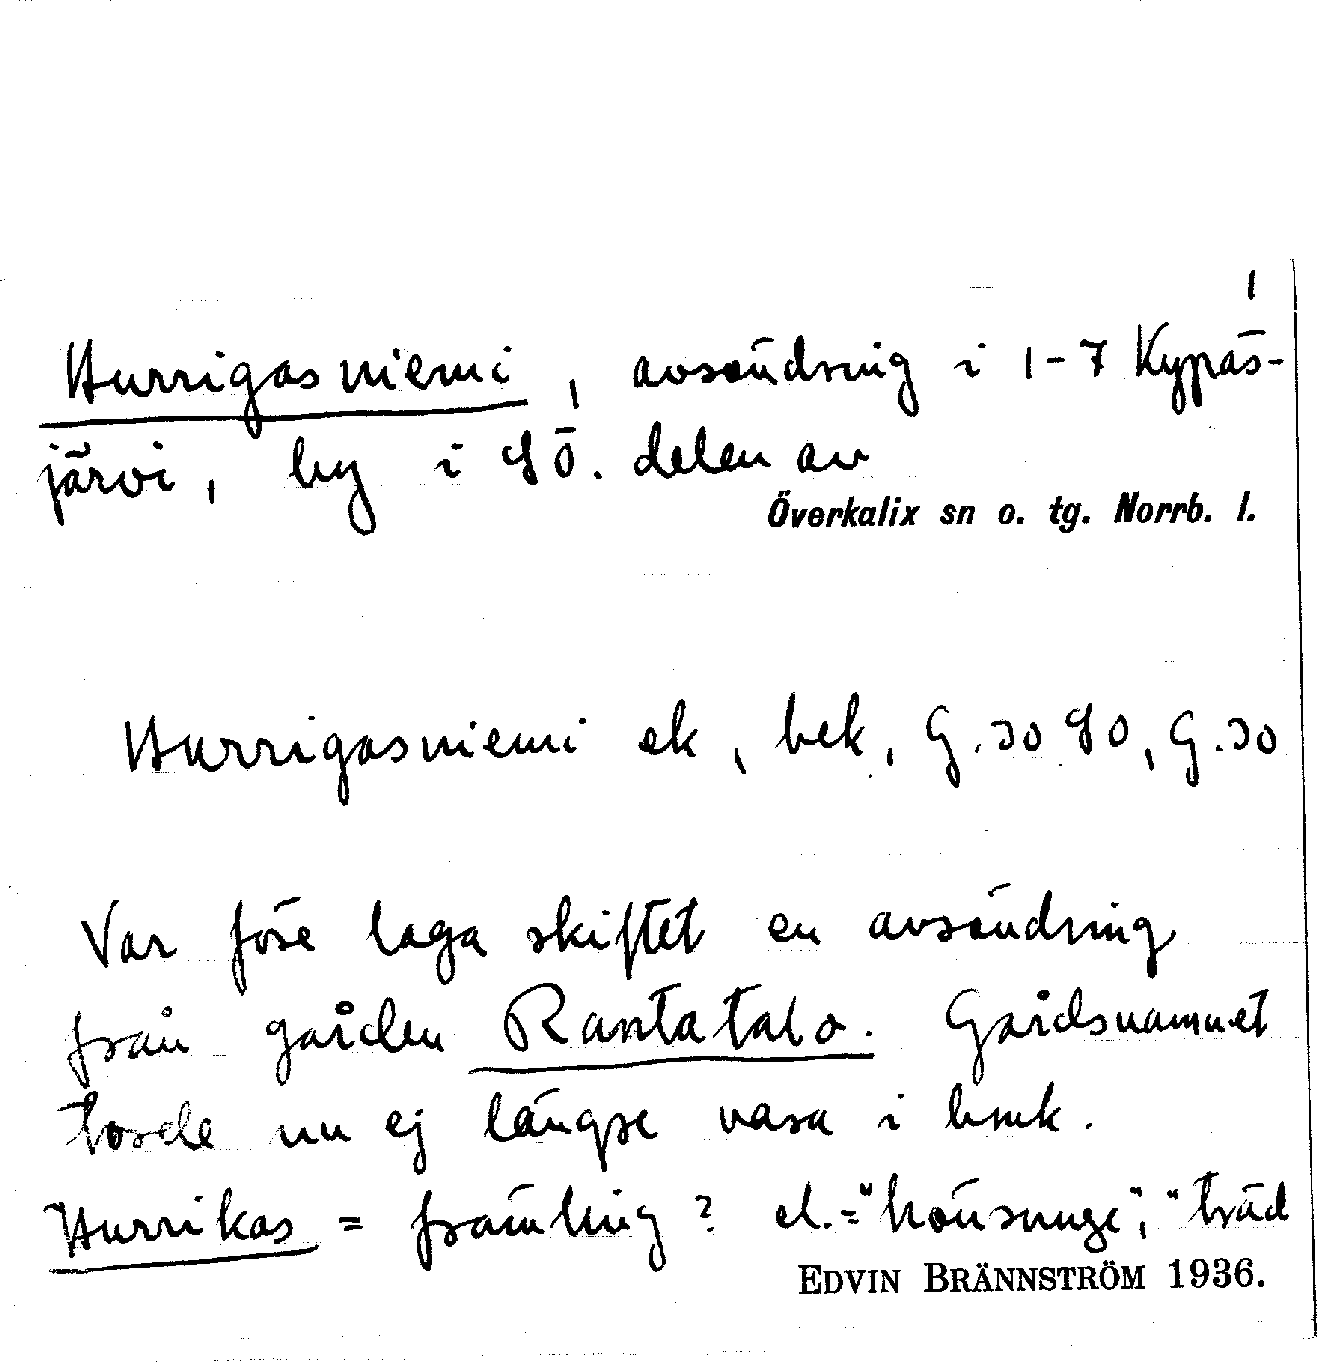 1
Hurrigasniemi, avsöndring i 1-7 Kypäs-
järvi, by i SÖ. delen av
Överkalix sn o. tg. Norrb. l.
Hurrigasniemi ek, bek, G.30 SO, G.30
Var före laga skiftet en avsöndring
från gården Rantatalo. Gårdsnamnet
torde nu ej längre vara i bruk.
Hurrikas = främling? el.="hönsunge", "träd
EDVIN BRÄNNSTRÖM 1936.